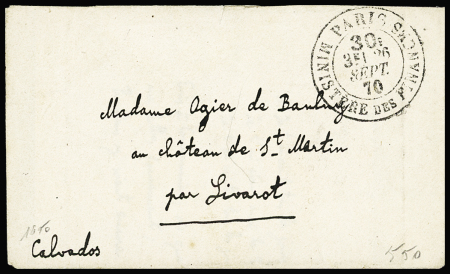 PARIS
MINISTÈRE DES FINANCES
3E/ 26
SEPT.
70
Madame Ogier de Baulny
au château de St Martin
par Livarot
Calvados
550